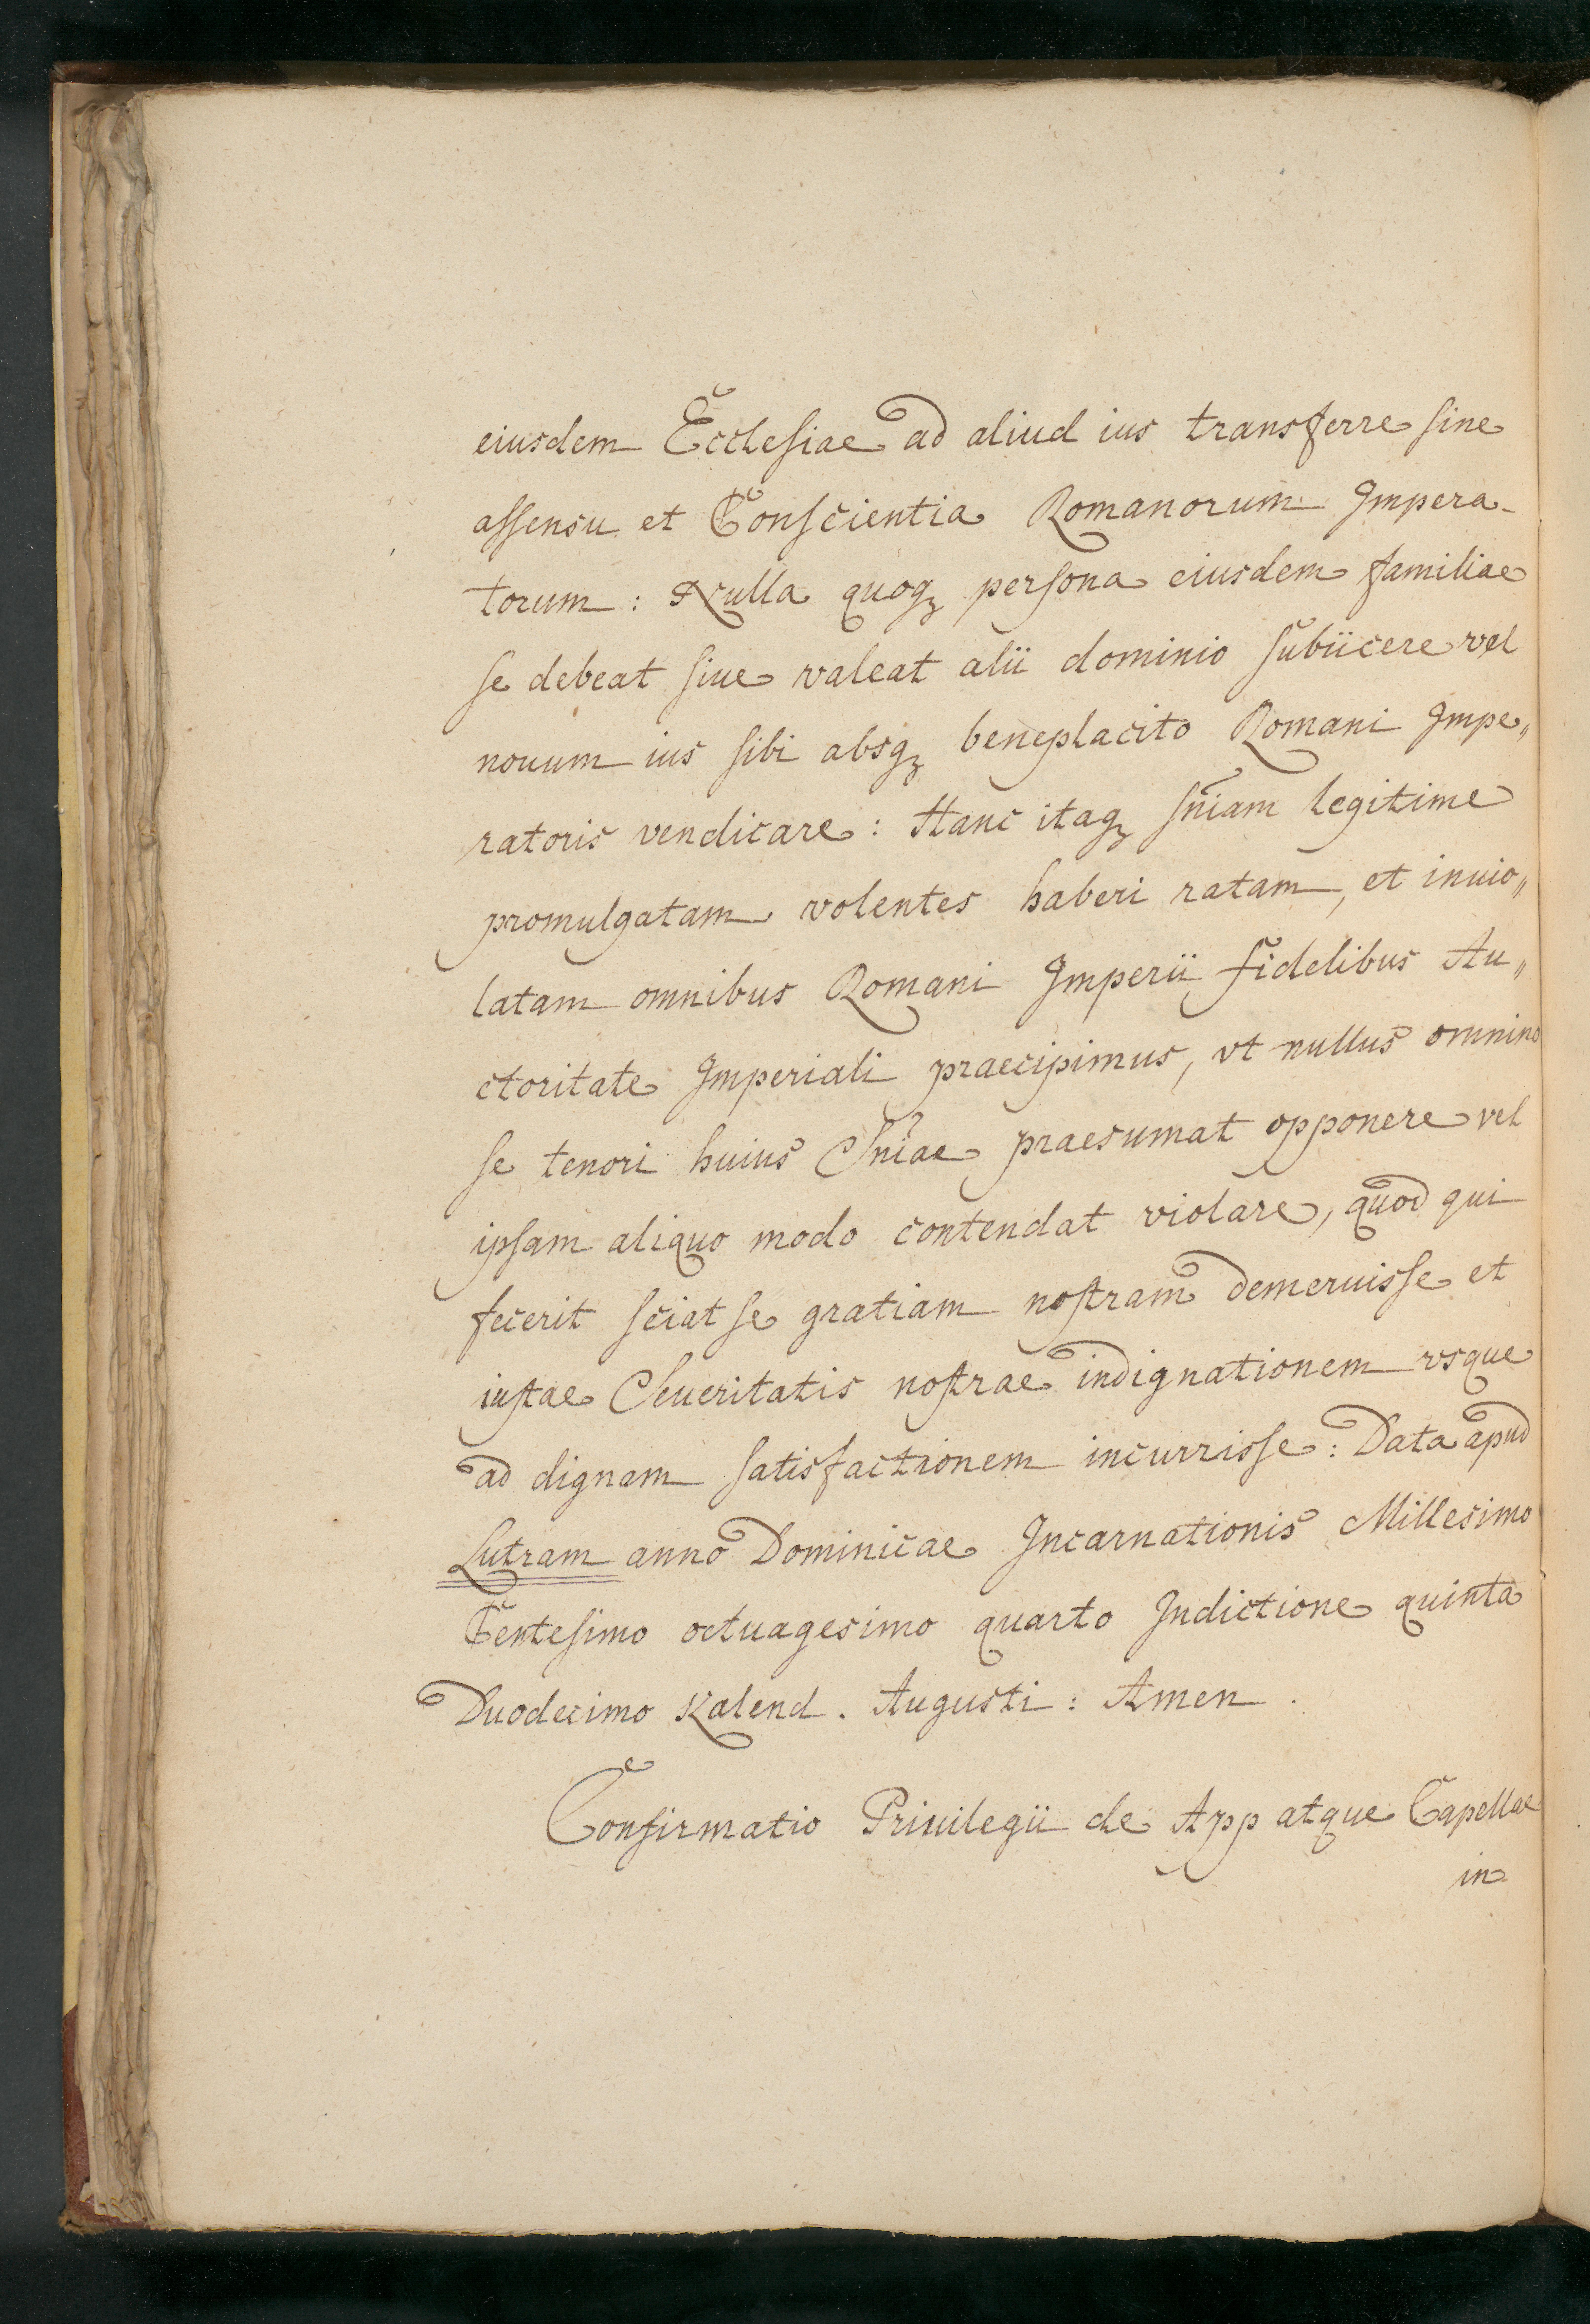 eiusdem Ecclesiae ad aliud ius transferre sine
assensu et Conscientia Romanorum Impera-
torum : Nulla quoqꝫ persona eiusdem familiae
se debeat siue valeat alii dominio subiicere vel
nouum ius sibi absqꝫ beneplacito Romani Impe„
ratoris vendicare : Hanc itaqꝫ sñiam legitime
promulgatam volentes haberi ratam, et inuio„
latam omnibus Romani Imperii fidelibus Au„
ctoritate Imperiali praecipimus, vt nullus omnino
se tenori huius Sñiae praesumat opponere vel
ipsam aliquo modo contendat violare, quod qui
fecerit sciat se gratiam nostram demeruisse et
iustae Seueritatis nostrae indignationem vsque
ad dignam satisfactionem incurrisse : Data apud
Lutram anno Dominicae Incarnationis Millesimo
Centesimo octuagesimo quarto Indictione quinta
Duodecimo Kalend. Augusti : Amen .
Confirmatio Priuilegii de App atque Capellae
in